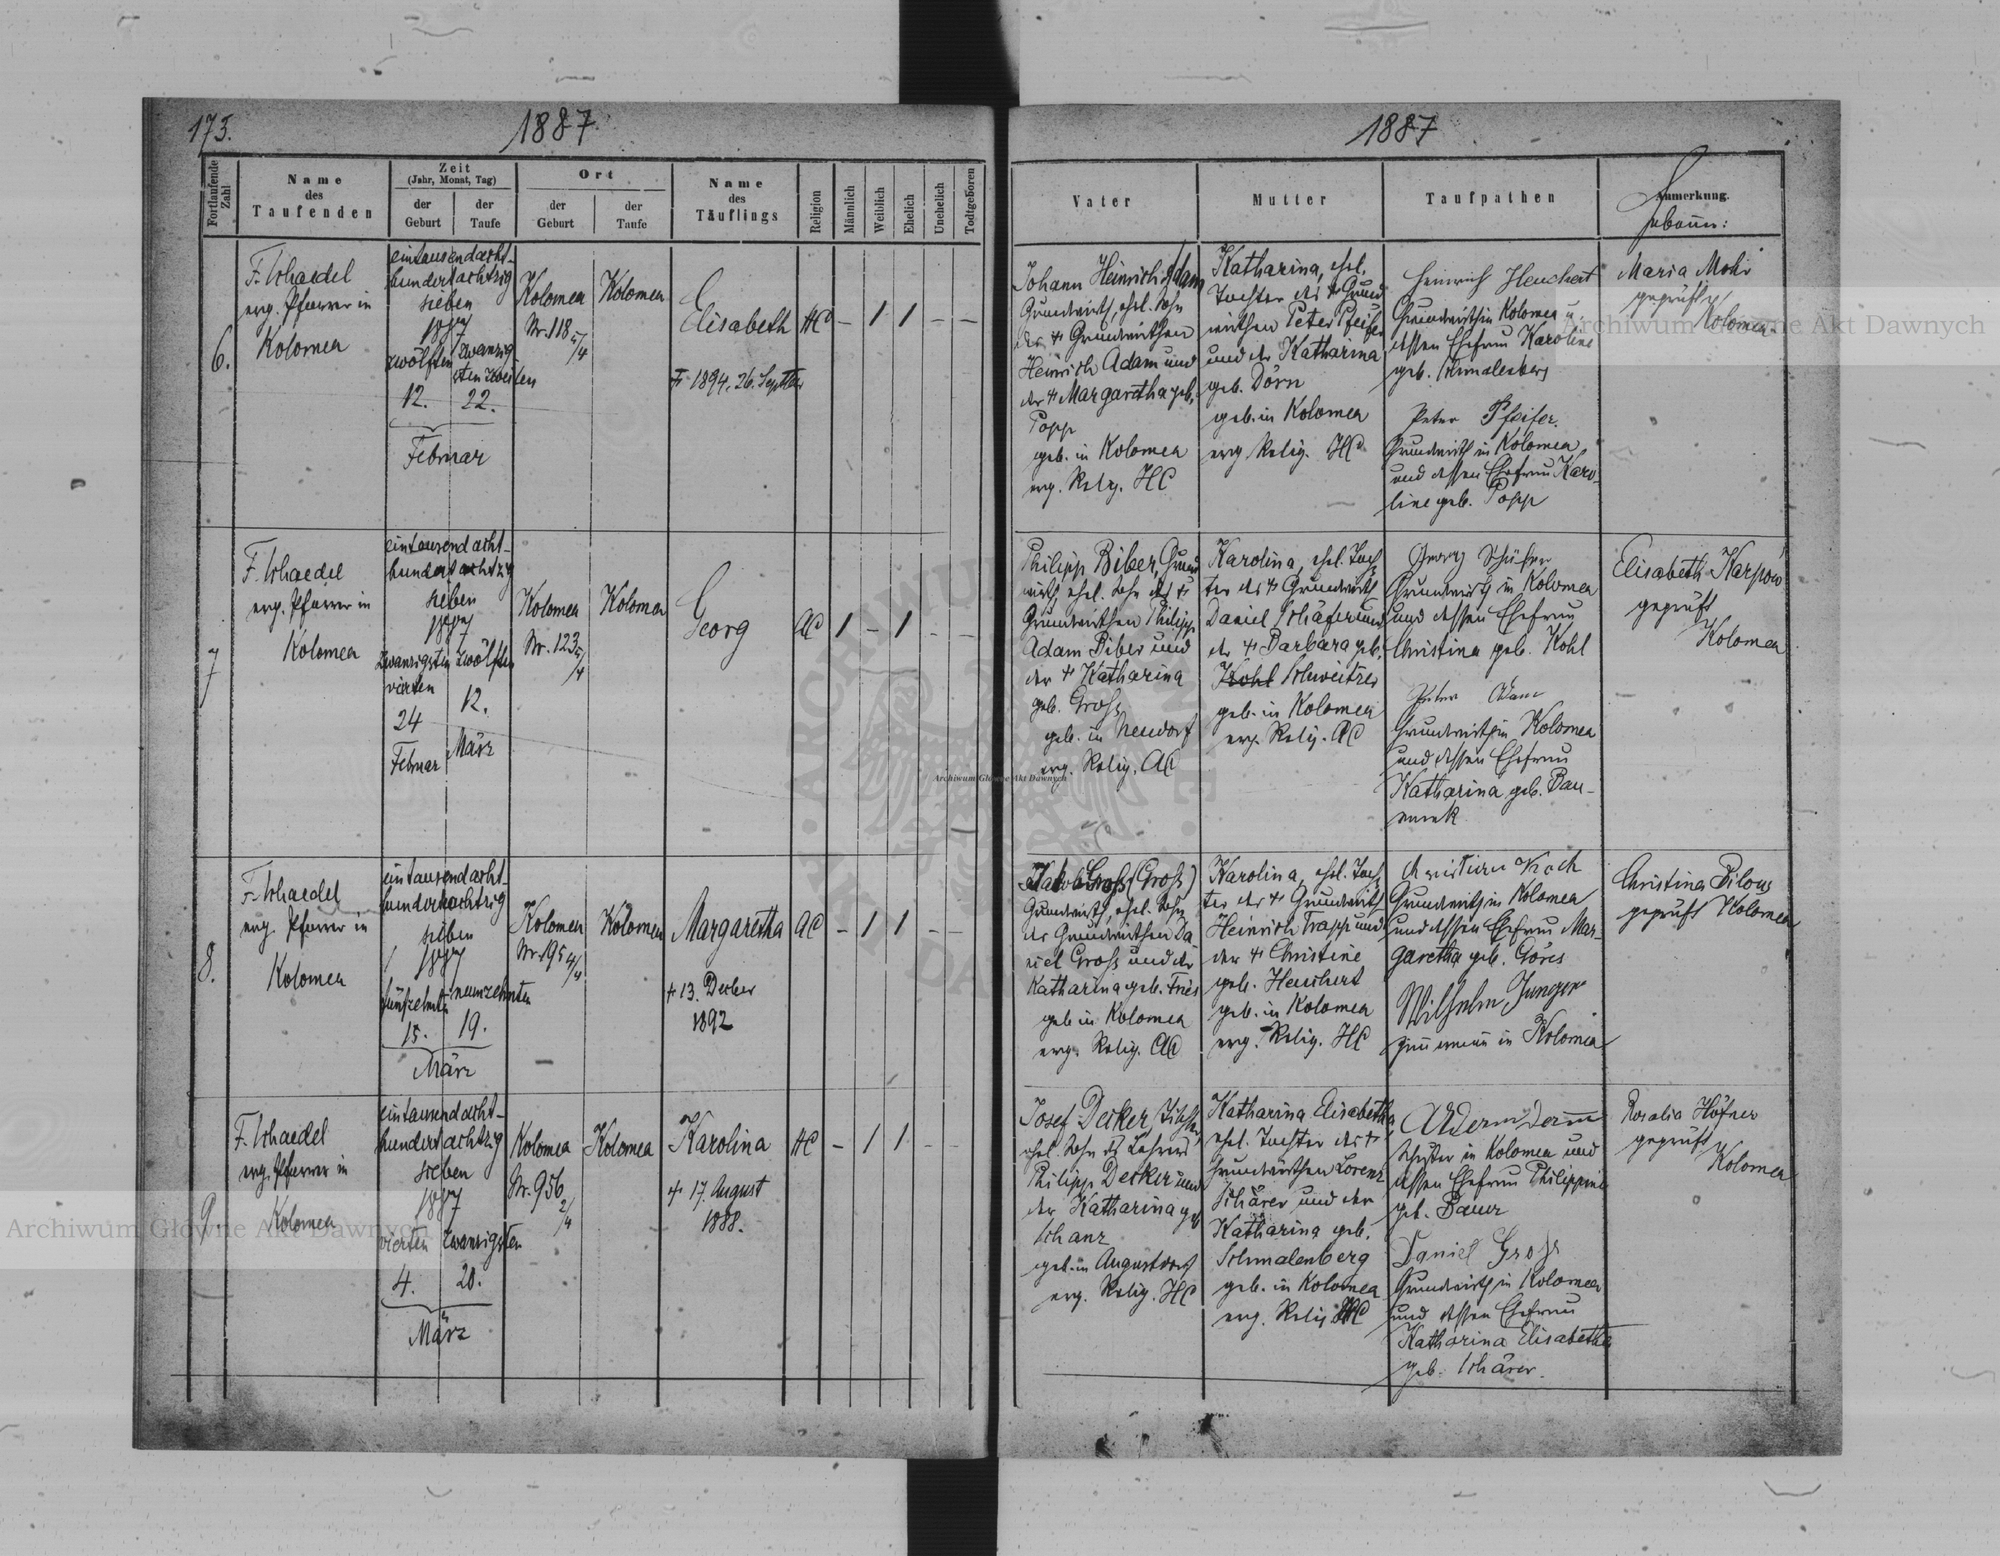 173.
1887
1887
Fortlaufende Zahl
Name
des
Taufenden
Zeit
(Jahr, Monat, Tag)
der
Geburt
der
Taufe
Ort
der
Geburt
der
Taufe
Name
des
Täuflings
Religion
Männlich
Weiblich
Ehelich
Unehelich
Todtgeboren
Vater
Mutter
Taufpathen
Anmerkung.
6.
F. Schaedel
evg. Pfarrer in
Kolomea
eintausendacht-
hundertachtzig
sieben
1887
zwölften
12.
zwanzig-
sten zweiten
22.
Februar
Kolomea
Nr. 118 5/4
Kolomea
Elisabeth
† 1894. 26. Septber
HC
- 1 1 - -
Johann Heinrich Adam
Grundwirth, ehel. Sohn
des † Grundwirthen
Heinrich Adam und
der † Margaretha geb.
Popp
geb. in Kolomea
evg. Relig. HC
Katharina, ehel.
Tochter des † Grund
wirthen Peter Pfeifer
und der Katharina
geb. Dörn
geb. in Kolomea
evg Relig. HC
Heinrich Heuchert
Grundwirth in Kolomea u.
dessen Ehefrau Karoline
geb. Schmalenberg
Peter Pfeifer.
Grundwirth in Kolomea
und dessen Ehefrau Karo-
line geb. Popp
Maria Mohr
geprüft
Kolomea
7
F. Schaedel
evg. Pfarrer in
Kolomea
eintausendacht-
hundert achtzig
sieben
1887
zwanzigsten
vierten
24
Februar
zwölften
12.
März
Kolomea
Nr. 123 5/4
Kolomea
Georg
AC
1 - 1 - -
Philipp Biber, Grund
wirth, ehel. Sohn des †
Grundwirthen Philipp
Adam Biber und
der † Katharina
geb. Gross
geb. in Neudorf
evg. Relig. AC
Karolina, ehel. Toch
ter des † Grundwirth
Daniel Schäfer und
der † Barbara geb.
Kohl Schweitzer
geb. in Kolomea
evg. Relig. AC
Georg Schäfer
Grundwirth in Kolomea
und dessen Ehefrau
Christina geb. Kohl
Peter Adam
Grundwirth in Kolomea
und dessen Ehefrau
Katharina geb. Bau-
Elisabeth Karpow
geprüft
Kolomea
8.
F. Schaedel
evg. Pfarrer in
Kolomea
eintausendacht-
hundertachtzig
sieben
1887
fünfzehnten
15.
neunzehnten
19.
März
Kolomea
Nr. 195 4/4
Kolomea
Margaretha
† 13. Decber
1892
AC
- 1 1 - -
Jakob Gross (Gross)
Grundwirth, ehel. Sohn
des Grundwirthen Da
niel Gross und der
Katharina geb. Fries
geb in Kolomea
evg. Relig. AC
Karolina, ehel. Toch
ter des † Grundwirth
Heinrich Trapp und
der † Christine
geb. Heuchert
geb. in Kolomea
evg. Relig. HC
Christian Koch
Grundwirth in Kolomea
und dessen Ehefrau Mar-
garetha geb. Göres
Wilhelm Junger
in Kolomea
Christina Pilous
geprüft Kolomea
9.
F. Schaedel
evg. Pfarrer in
Kolomea
eintausendacht-
hundert achtzig
sieben
1887
vierten
4.
zwanzigsten
20.
März
Kolomea
Nr. 956 2/4
Kolomea
Karolina
† 17. August
1888.
HC
- 1 1 - -
Josef Decker, Tischler
ehel. Sohn des Lehrers
Philipp Decker und
der Katharina geb
Schanz
geb. in Augustdorf
evg. Relig. HC
Katharina Elisabetha
ehel. Tochter des †
Grundwirthen Lorenz
Schärer und der
Katharina geb.
Schmalenberg
geb. in Kolomea
evg. Relig HC
in Kolomea und
dessen Ehefrau Philippine
geb. Bauer
Daniel Gross
Grundwirth in Kolomea
und dessen Ehefrau
Katharina Elisabetha
geb. Schärer.
Rosalia Höfner
geprüft
Kolomea
Archiwum Główne Akt Dawnych
Archiwum Główne Akt Dawnych
Archiwum Główne Akt Dawnych